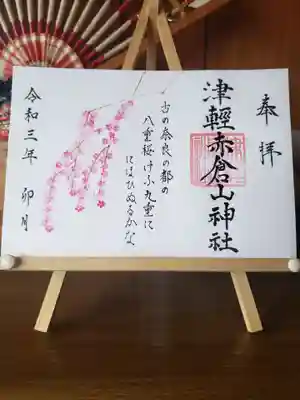 奉拝
津輕赤倉山神社
古の奈良の都の
八重桜けふ九重に
にほひぬるかな
令和三年 卯月